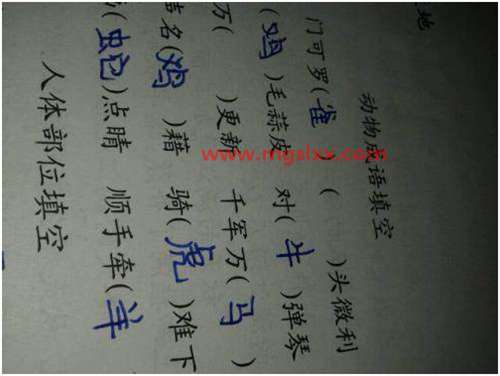 地
动物成语填空
门可罗(雀 ( )头微利
(鸡)毛蒜皮 对(牛)弹琴
万( )更新 千军万(马)
名(鸡)藉 骑(虎)难下
(蛇)点睛 顺手牵(羊
人体部位填空
www.mgslxx.com